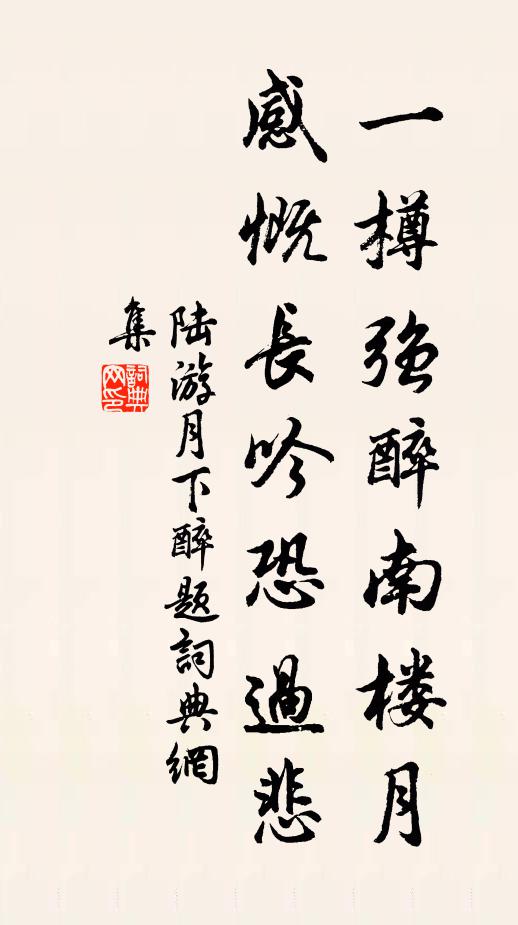 一樽强醉南楼月
感慨長吟恐過悲
陆游月下醉题詞典網
集
詞典网印